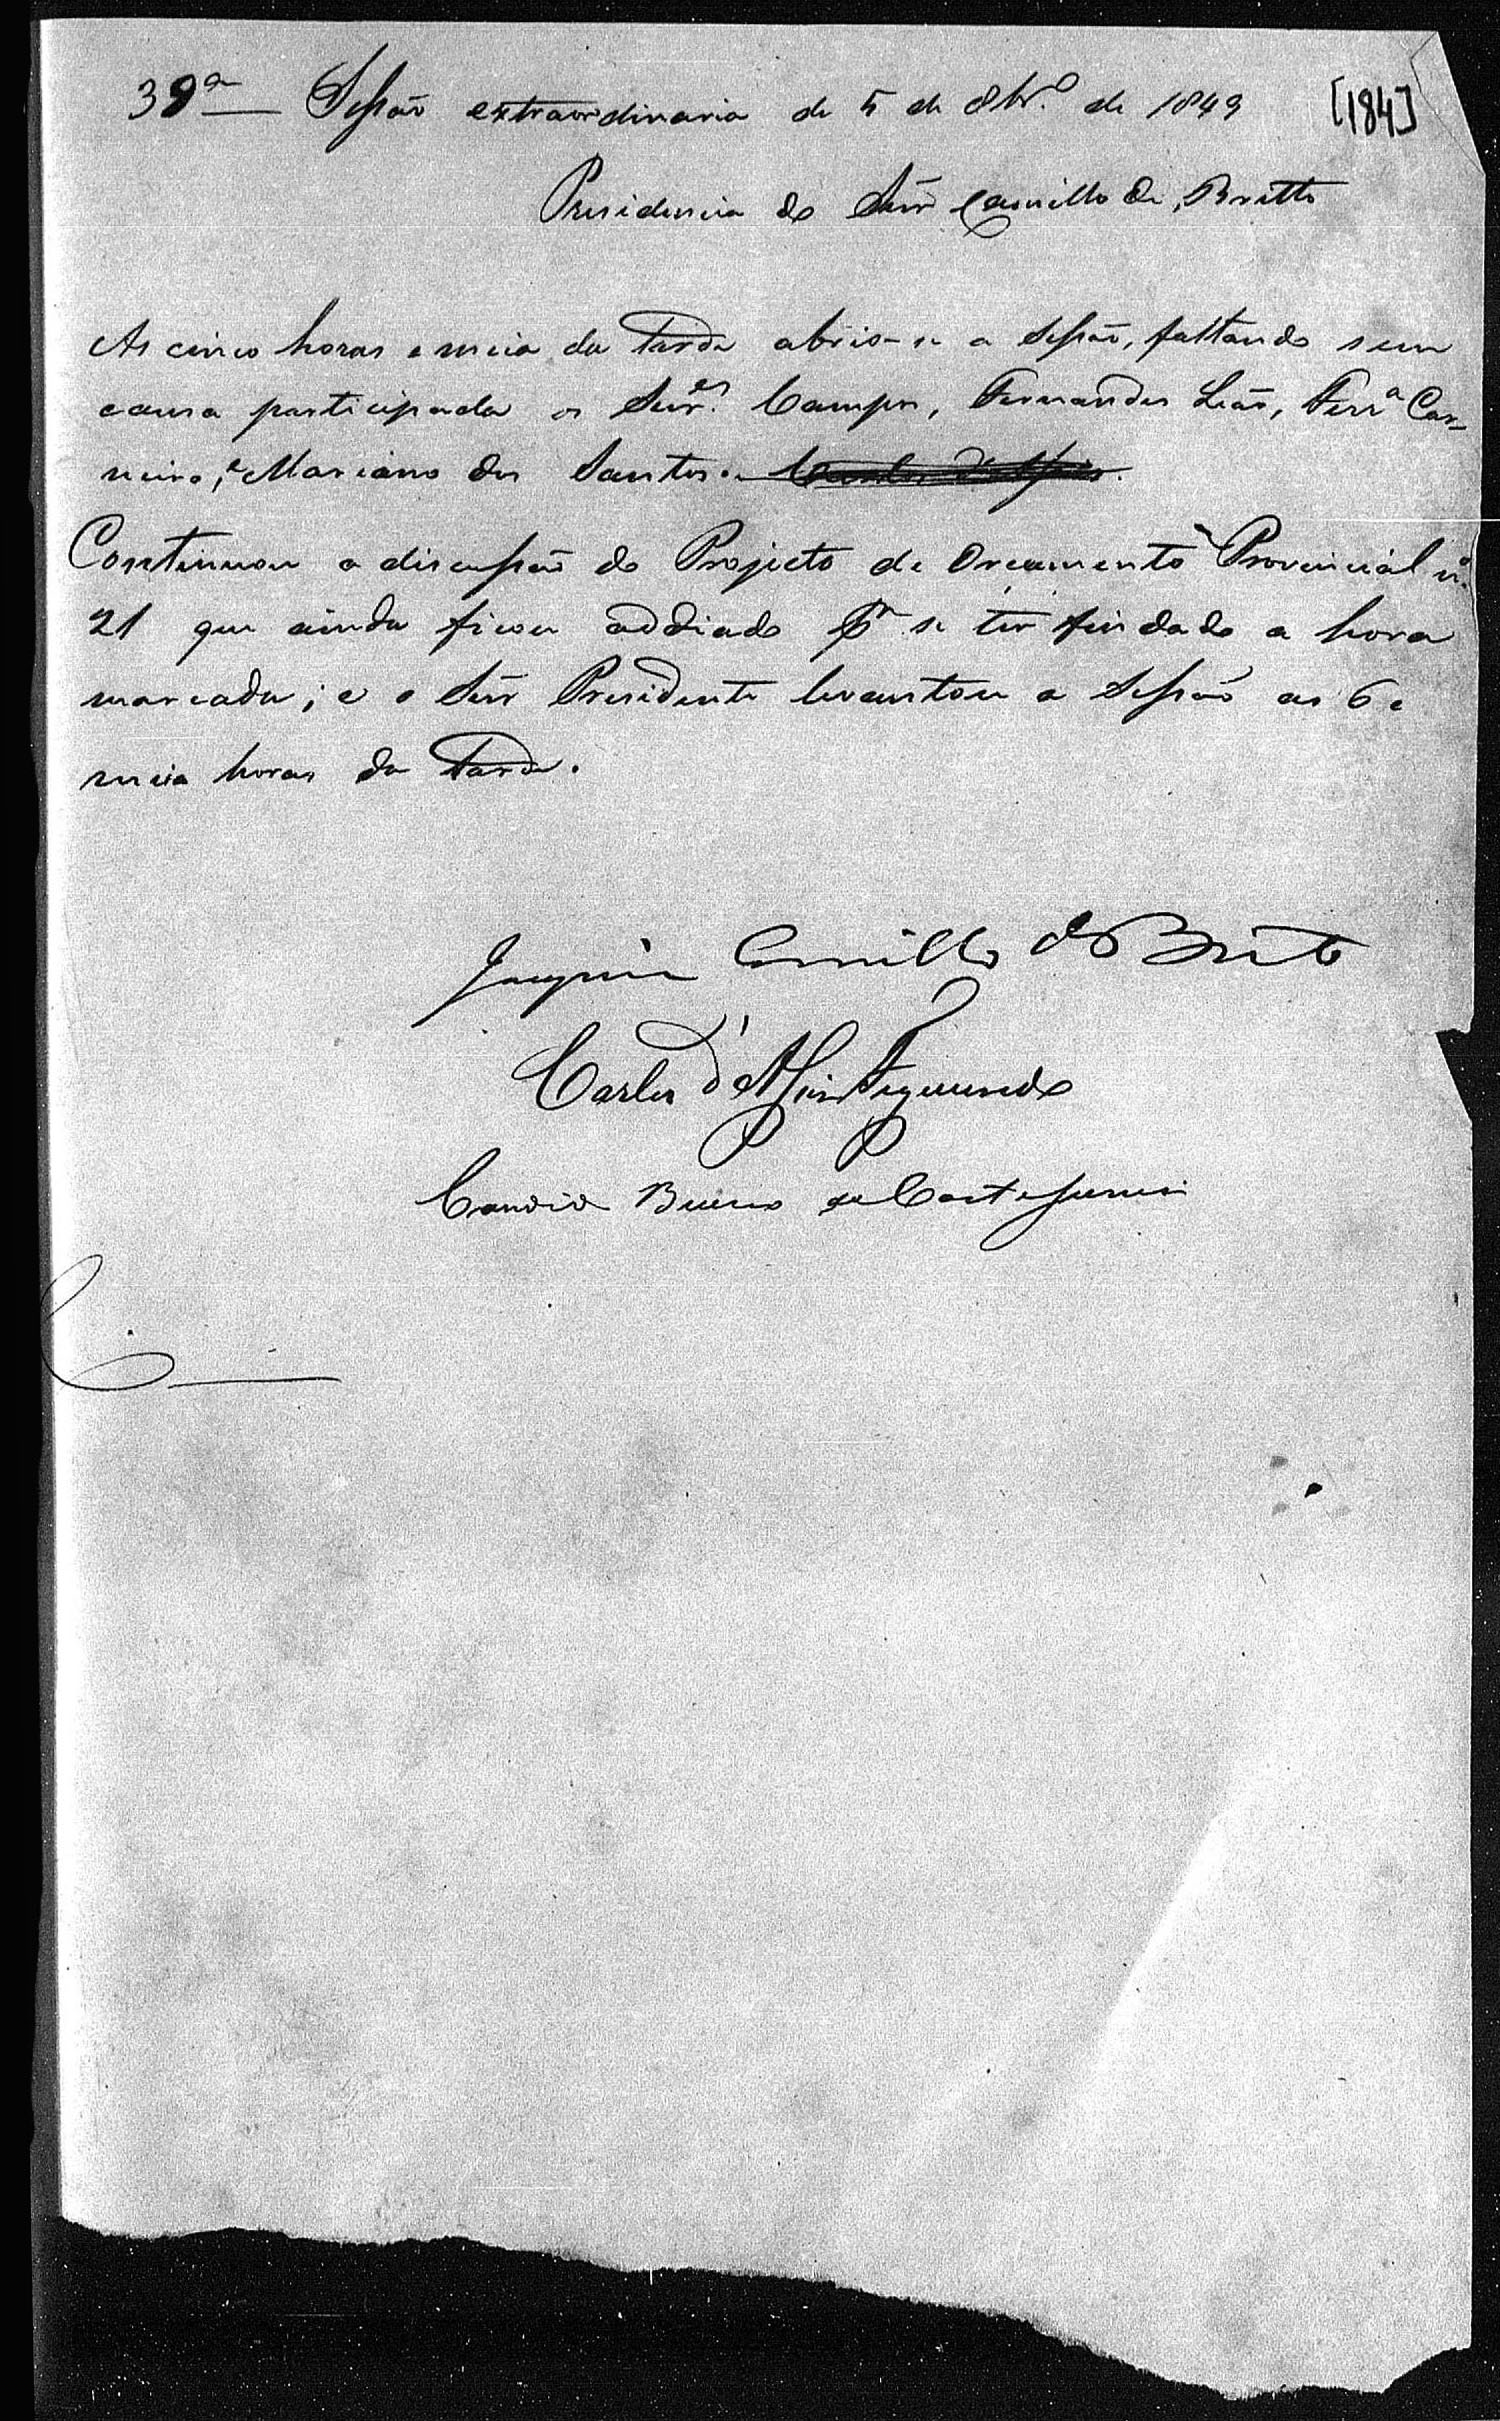 39ª — Sessão extraordinaria de 5 de 8br.º de 1849 [184]
Presidencia do Snr Camillo de Britto
As cinco horas e meia da tarde abrio-se a Sessão, faltando sem
causa participada os Snr.es Campos, Fernandes Leão, Ferrª Car-
neiro, e Mariano dos Santos
Continuou a discussão do Projecto de Orçamento Provincial nº
21 que ainda ficou addiado pr se ter findado a hora
marcada; e o Snr Presidente levantou a Sessão as 6 e
meia horas da tarde.
Joaquim Camillo de Brito
Carlos d'Assis Figueiredo
Candido Bueno da Costa